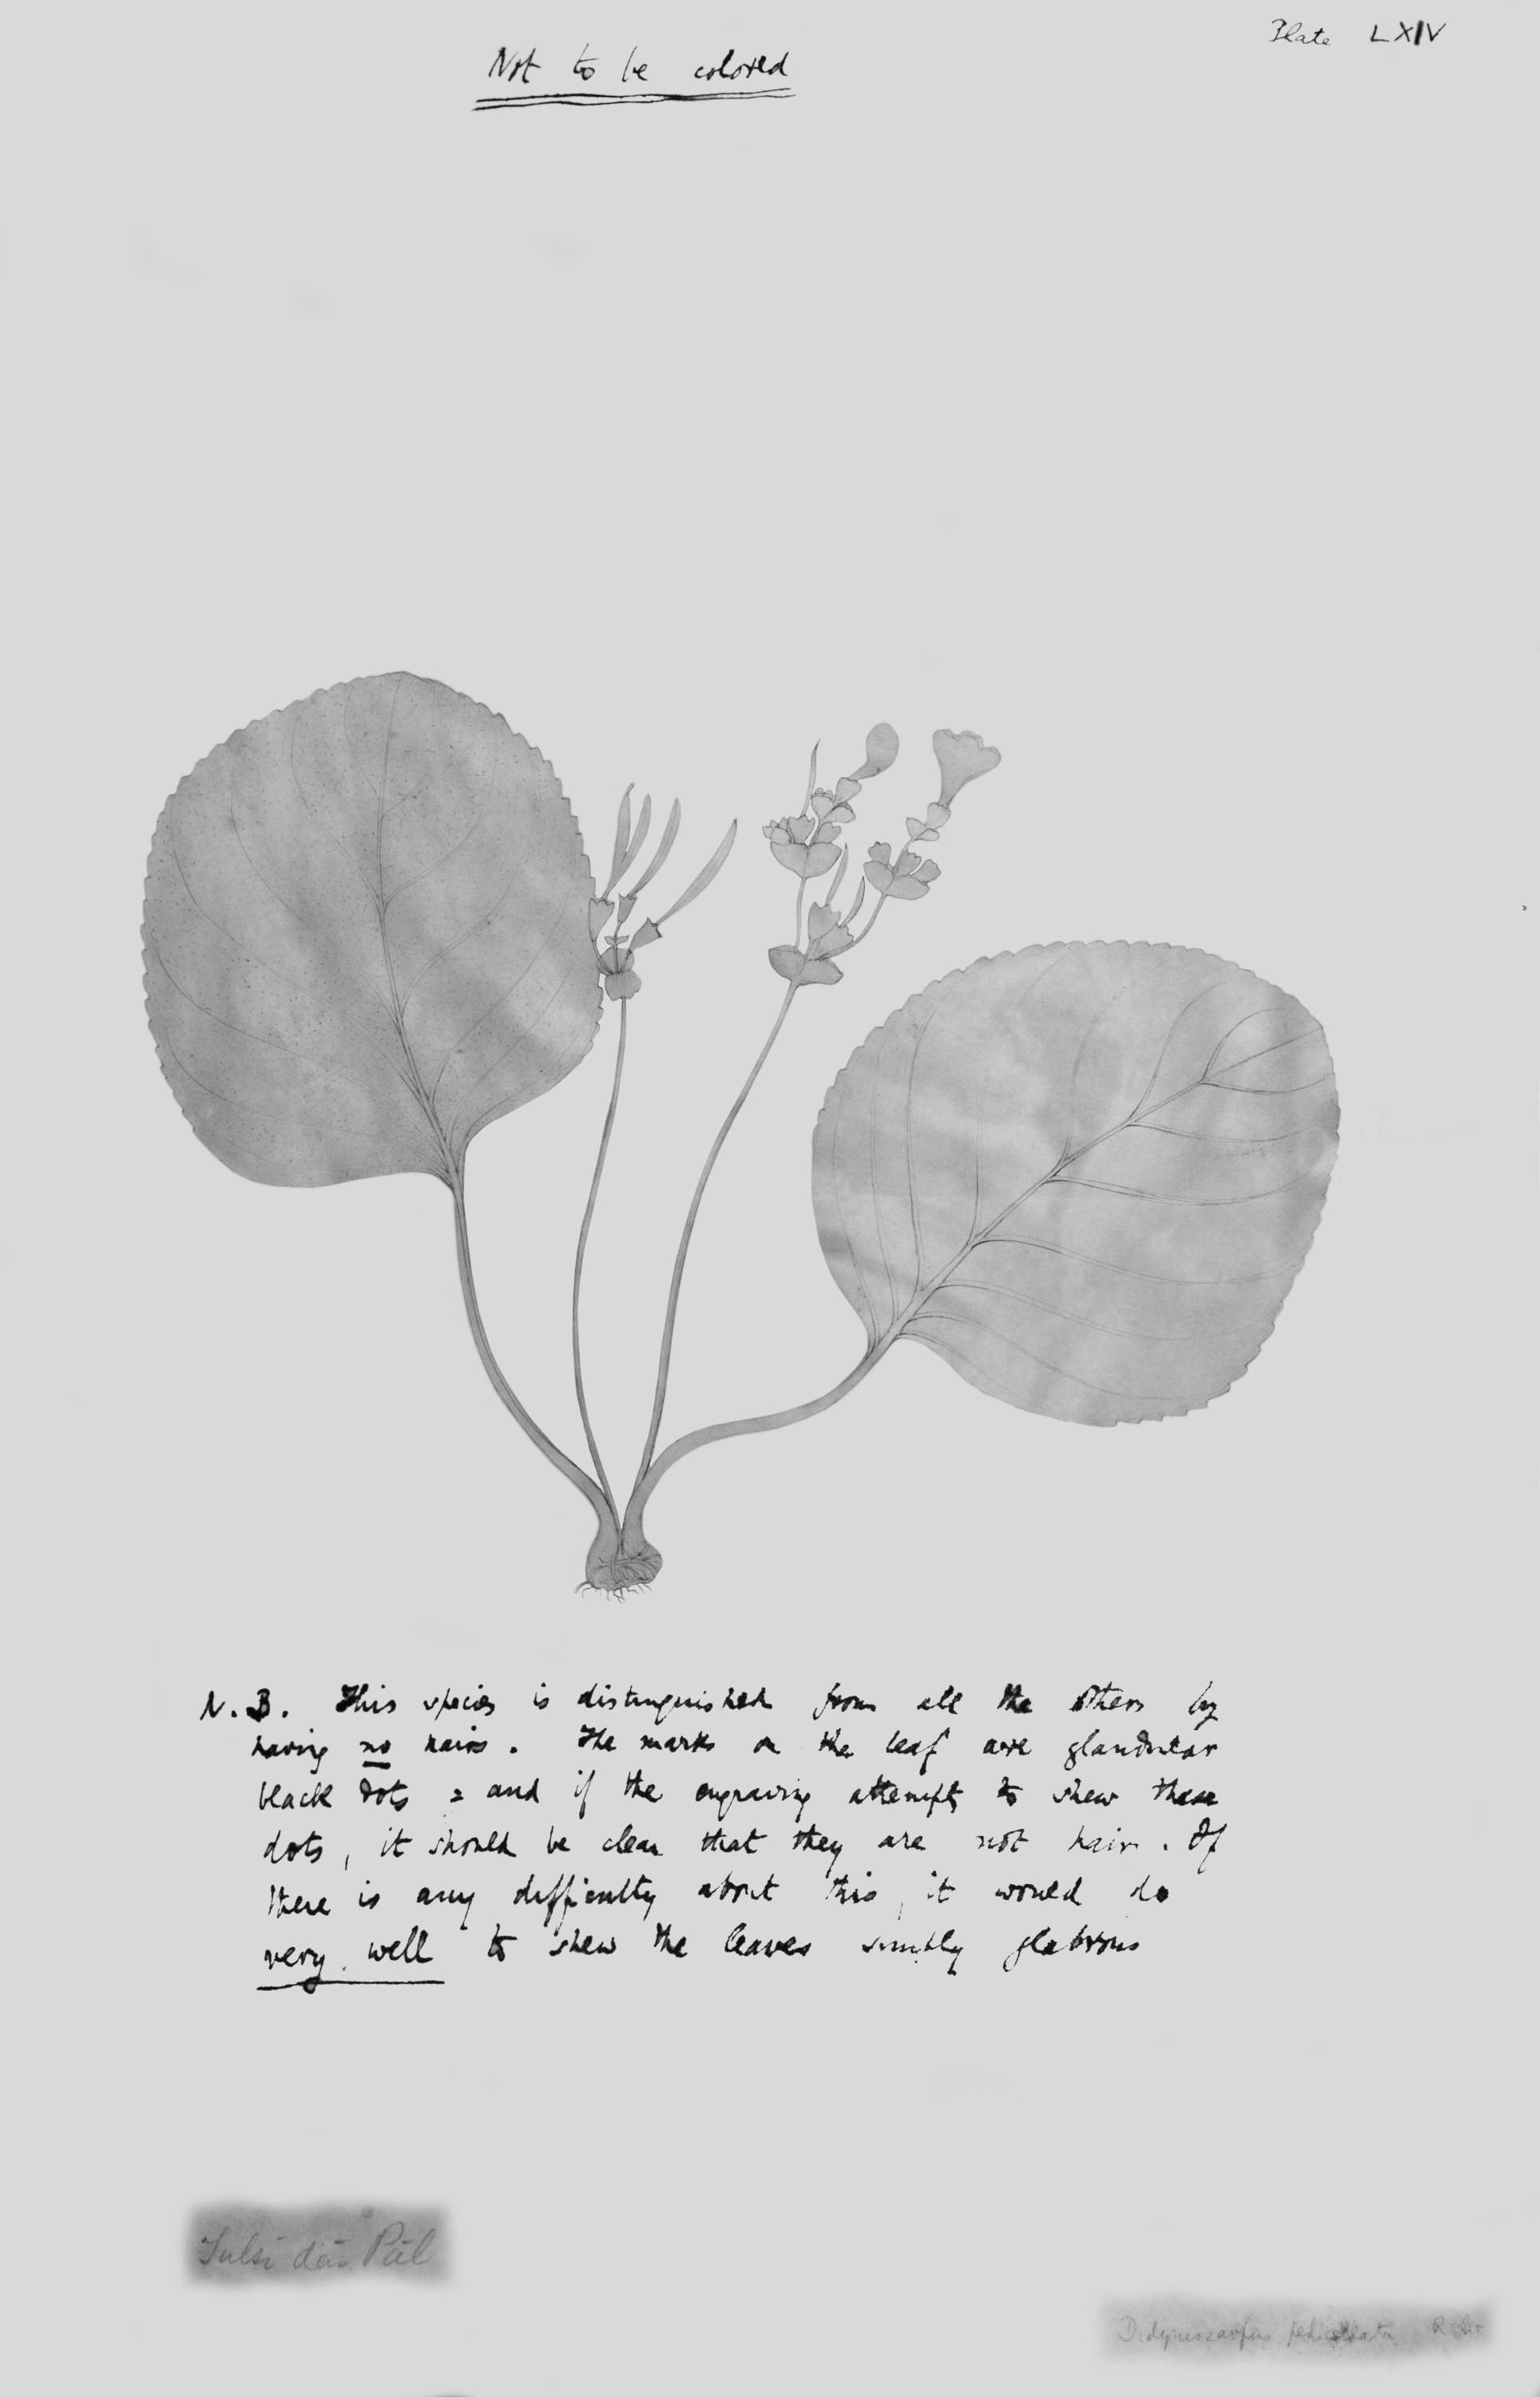 Plate LXIV
Not to be colored
N.B. This species is distinguished from all the others by
having no hairs. The marks on the leaf are glandular
black dots : and if the engraving attempts to shew these
dots, it should be clear that they are not hairs. If
there is any difficulty about this, it would do
very well to shew the leaves simply glabrous
Tulsi dás Pál
Didymocarpus pedicellata R. Br.